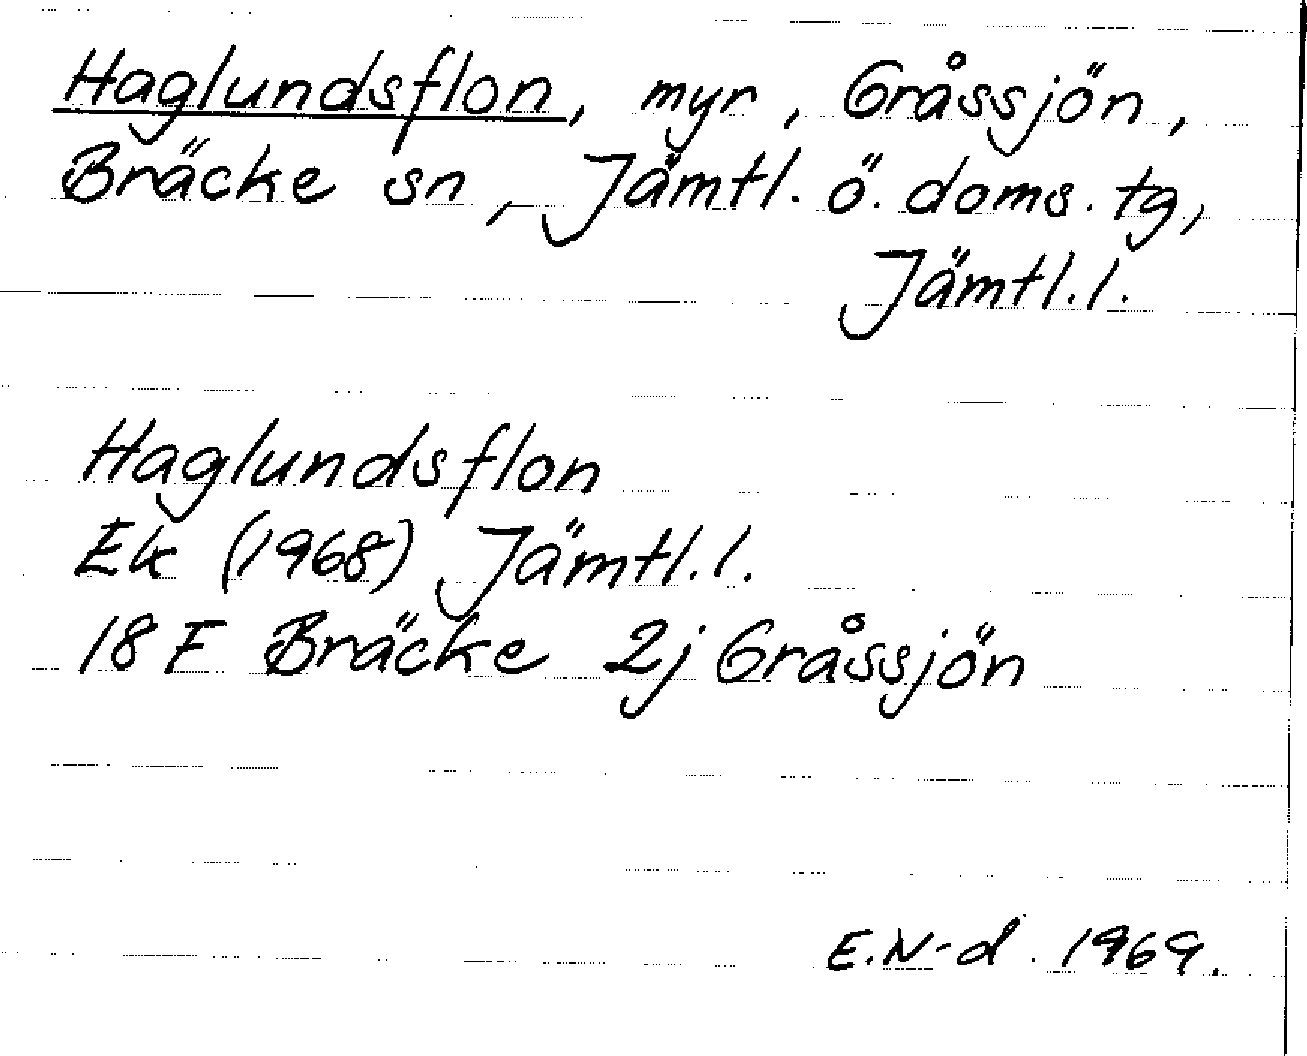 Haglundsflon, myr, Gråssjön,
Bräcke sn, Jämtl. ö. doms. tg,
Jämtl. l.
Haglundsflon
Ek (1968) Jämtl. l.
18 F Bräcke 2j Gråssjön
E.N-d. 1969.